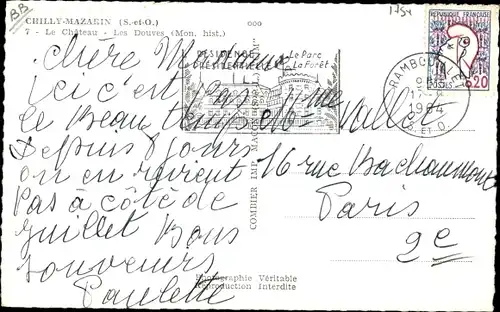 BB
CHILLY-MAZARIN (S.-et-O.)
7 - Le Château - Les Douves (Mon. hist.)
1754
chère Madame
ici c'est pas
le Beau temps
depuis 8 jours
on en revient
pas à côté de
Juillet Bons
souvenirs
Paulette
COMBIER IMP. MACON
RESIDENCE
Le Parc
La Forêt
RAMBOU
1964
S. ET O.
REPUBLIQUE FRANÇAISE
POSTES 0.20
Mme Vallet
16 rue Bachaumont
Paris
2e
Photographie Véritable
Reproduction Interdite